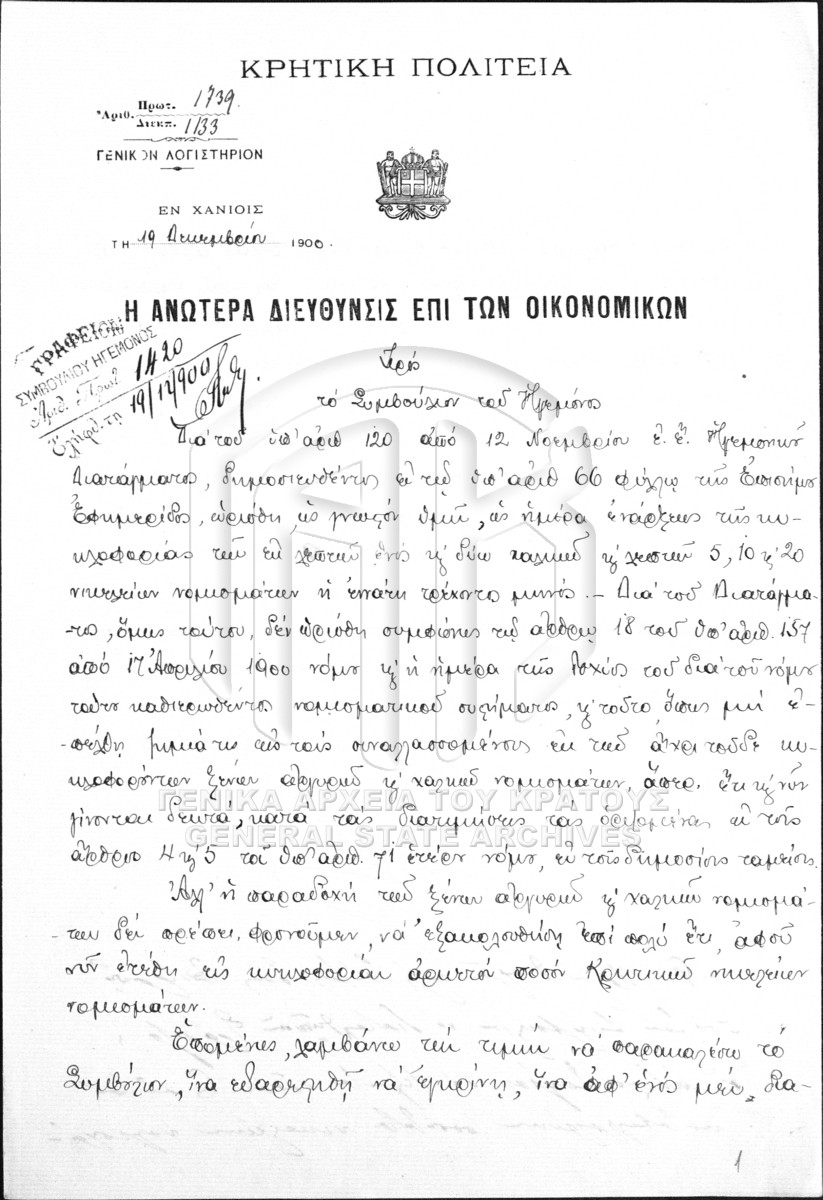 ΚΡΗΤΙΚΗ ΠΟΛΙΤΕΙΑ
Ἀριθ. Πρωτ. 1739
Διεκπ. 1133
ΓΕΝΙΚΟΝ ΛΟΓΙΣΤΗΡΙΟΝ
ΕΝ ΧΑΝΙΟΙΣ
ΤΗ 19 Δεκεμβρίου 1900.
Η ΑΝΩΤΕΡΑ ΔΙΕΥΘΥΝΣΙΣ ΕΠΙ ΤΩΝ ΟΙΚΟΝΟΜΙΚΩΝ
ΓΡΑΦΕΙΟΝ
ΣΥΜΒΟΥΛΙΟΥ ΗΓΕΜΟΝΟΣ
Ἀριθ. Πρωτ. 1420
Ἐλήφθ. τῃ 19/12/900
Πρὸς
τὸ Συμβούλιον τοῦ Ἡγεμόνος
Διὰ τοῦ ὑπ' ἀριθ 120 ἀπὸ 12 Νοεμβρίου ἐ. ἔ. Ἡγεμονικοῦ
Διατάγματος, δημοσιευθέντος ἐν τῷ ὑπ' ἀριθ 66 φύλλῳ τῆς Ἐπισήμου
Ἐφημερίδος, ὡρίσθη, ὡς γνωστὸν ὑμῖν, ὡς ἡμέρα ἐνάρξεως τῆς κυ-
κλοφορίας τῶν ἐκ λεπτῶν ἑνὸς κ̣ δύω χαλκῶν κ̣ λεπτῶν 5, 10 κ̣ 20
νικελίνων νομισμάτων ἡ ἐννάτη τρέχοντος μηνός. – Διὰ τοῦ Διατάγμα-
-τος, ὅμως τούτου, δὲν ὡρίσθη συμφώνως τῷ ἄρθρῳ 18 τοῦ ὑπ' ἀριθ. 157
ἀπὸ 17 Ἀπριλίου 1900 νόμου κ̣ ἡ ἡμέρα τῆς ἰσχύος τοῦ διὰ τοῦ νόμου
τούτου καθιερωθέντος νομισματικοῦ συστήματος, κ̣ τοῦτο, ὅπως μὴ ἐ-
-πέλθῃ ζημία τις εἰς τοὺς συναλλασσομένους ἐκ τῶν ἄχρι τοῦδε κυ-
κλοφορούντων ξένων ἀργυρῶν κ̣ χαλκῶν νομισμάτων, ἅπερ, ἔτι κ̣ νῦν
γίνονται δεκτά, κατὰ τὰς διατιμήσεις τὰς ὁριζομένας ἐν τοῖς
ἄρθροις 4 κ̣ 5 τοῦ ὑπ' ἀριθ. 71 ἑτέρου νόμου, ἐν τοῖς δημοσίοις ταμείοις.
Ἀλλ' ἡ παραδοχὴ τῶν ξένων ἀργυρῶν κ̣ χαλκῶν νομισμά-
-των δὲν πρέπει, φρονοῦμεν, νὰ ἐξακολουθήσῃ ἐπὶ πολὺ ἔτι, ἀφοῦ
νῦν ἐτέθη εἰς κυκλοφορίαν ἀρκετὸν ποσὸν Κρητικῶν νικελίνων
νομισμάτων.
Ἑπομένως, λαμβάνω τὴν τιμὴν νὰ παρακαλέσω τὸ
Συμβούλιον, ἵνα εὐαρεστηθῇ νὰ ἐγκρίνῃ, ἵνα ἀφ' ἑνὸς μὲν δια-
1
ΓΕΝΙΚΑ ΑΡΧΕΙΑ ΤΟΥ ΚΡΑΤΟΥΣ
GENERAL STATE ARCHIVES